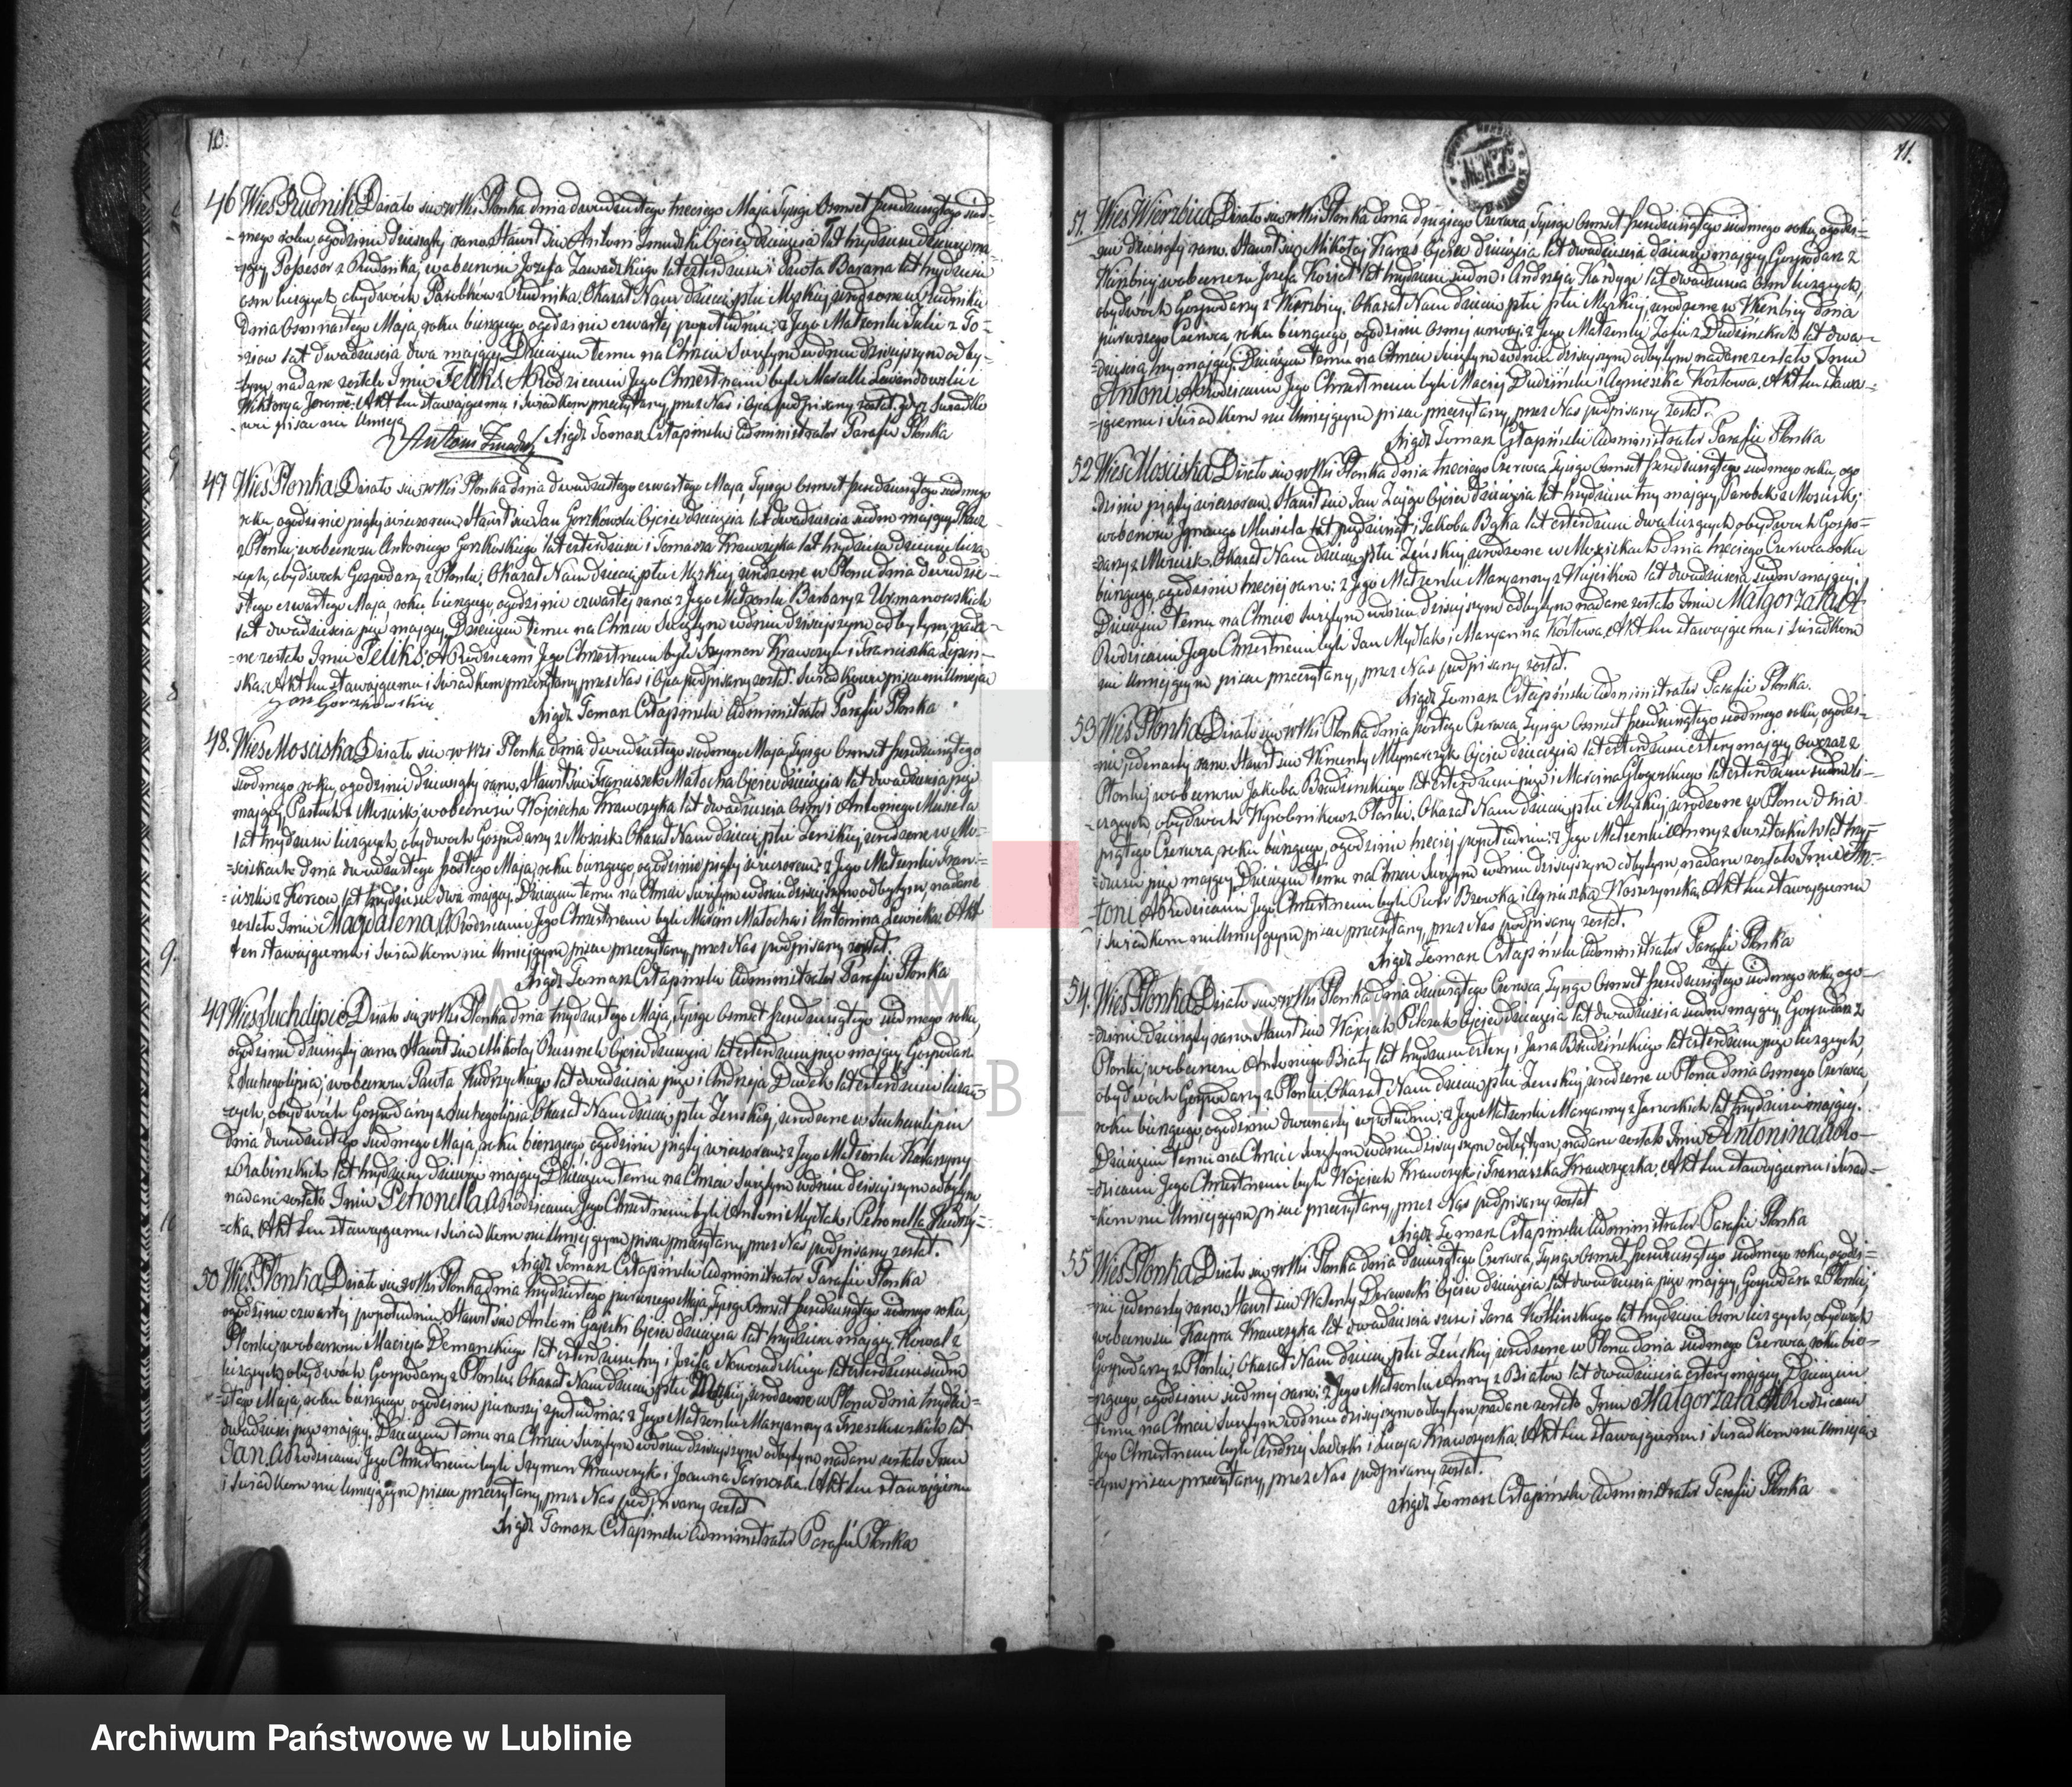 10.
46 Wieś Rudnik Działo się w Wsi Płonka dnia dwudziestego trzeciego Maja Tysiąc Ośmset pięćdziesiątego siód-
-mego roku, ogodzinie dziesiąty rano. Stawił się Antoni Ojciec dziecięcia lat trzydzieści dziewięć ma-
-jący, Possesor z Rudnika, w obecności Józefa Zawadzkiego lat czterdzieści i Pawła Barana lat trzydzieści
osm liczących, obydwóch Parobków z Rudnika, Okazał Nam dziecię płci Męskiej urodzone w Rudniku
dnia Osmnastego Maja, roku bieżącego ogodzinie czwarty popołudniu, z Jego Małżonki Julii z
lat dwadzieścia dwa mający. Dziecięciu temu na Chrzcie Świętym w dniu dzisiejszym odby-
-tym, nadane zostało Imie Feliks, A Rodzicami Jego Chrzestnemi byli Marcelli Lewandowski i
Wiktorya Akt ten stawającemu i Świadkom przeczytany, przez Nas i Ojca podpisany został, gdyż Świadko-
-wie pisać nie Umieją
Antoni Xiądz Tomasz Człapiński Administrator Parafii Płonka
47 Wieś Płonka Działo się w Wsi Płonka dnia dwudziestego czwartego Maja, Tysiąc Ośmset pięćdziesiątego siódmego
roku, ogodzinie piąty wieczorem, Stawił się Jan Gorzkowski Ojciec dziecięcia lat dwadzieścia siedm mający,
z Płonki, w obecności Antoniego Gorzkoskiego lat czterdzieści i Tomasza Krawczyka lat trzydzieści dziewięć licza-
-cych, obydwóch Gospodarzy z Płonki, Okazał Nam dziecię płci Męskiej urodzone w Płonce dnia dwudzie-
stego czwartego Maja, roku bieżącego, ogodzinie czwartej rano z Jego Małżonki Barbary z Urmanowskich
lat dwadzieścia pięć mający. Dziecięciu temu na Chrzcie Świętym w dniu dzisiejszym odbytym, nada-
-ne zostało Imie Feliks, A Rodzicami Jego Chrzestnemi byli Szymon Krawczyk i Franciszka
-ska. Akt ten stawającemu i Świadkom przeczytany, przez Nas i Ojca podpisany został. Świadkowie pisać nie Umieją
Jan Gorzkowski
Xiądz Tomasz Człapiński Administrator Parafii Płonka
48. Wieś Mosciska Działo się w Wsi Płonka dnia dwudziestego siódmego Maja, Tysiąc Ośmset pięćdziesiątego
siódmego roku, ogodzinie dziesiąty rano, Stawił się Franciszek Małocha Ojciec dziecięcia lat dwadzieścia pięć
mający, Pastuch z Mościsk, w obecności Wojciecha Krawczyka lat dwadzieścia Osm i Antoniego Musieła
lat trzydzieści liczących, obydwóch Gospodarzy z Mościsk, Okazał Nam dziecię płci Żeńskiej, urodzone w Mo-
-ściskach dnia dwudziestego Maja, roku bieżącego ogodzinie piąty wieczorem, z Jego Małżonki Fran-
-ciszki z lat trzydzieści dwa mający. Dziecięciu temu na Chrzcie Świętym w dniu dzisiejszym odbytym, nadane
zostało Imie Magdalena, A Rodzicami Jego Chrzestnemi byli Marcin Małocha i Antonina Lewicka. Akt
ten stawającemu i Świadkom nie Umiejącym pisać przeczytany, przez Nas podpisany został.
Xiądz Tomasz Człapiński Administrator Parafii Płonka
49 Wieś Suchelipie Działo się w Wsi Płonka dnia trzydziestego Maja, Tysiąc Ośmset pięćdziesiątego siódmego roku,
ogodzinie dziesiąty rano. Stawił się Mikołaj Ojciec dziecięcia lat czterdzieści pięć mający Gospodarz
z Suchegolipia, w obecności Pawła Kudrzyckiego lat dwadzieścia pięć i Andrzeja Dudek lat czterdzieści licza-
-cych, obydwóch Gospodarzy z Suchegolipia, Okazał Nam dziecię płci Żeńskiej, urodzone w Suchemlipiu
dnia dwudziestego siódmego Maja, roku bieżącego, ogodzinie piąty wieczorem, z Jego Małżonki Katarzyny
z Rabińskich lat trzydzieści dziewięć mający. Dziecięciu temu na Chrzcie Świętym w dniu dzisiejszym odbytym
nadane zostało Imie Petronella, A Rodzicami Jego Chrzestnemi byli Antoni Mydlak i Petronella
-cka, Akt ten stawającemu i Świadkom nie Umiejącym pisać przeczytany, przez Nas podpisany został.
Xiądz Tomasz Człapiński Administrator Parafii Płonka
50 Wieś Płonka Działo się w Wsi Płonka dnia trzydziestego pierwszego Maja, Tysiąc Ośmset pięćdziesiątego siódmego roku,
ogodzinie czwartej popołudniu, Stawił się Antoni Gajeski Ojciec dziecięcia lat trzydzieści mający, Kowal z
Płonki, w obecności Macieja Demańskiego lat czterdzieści trzy i Józefa Nowosadzkiego lat czterdzieści siedm
liczących, obydwóch Gospodarzy z Płonki, Okazał Nam dziecię płci Męskiej, urodzone w Płonce dnia trzydzie-
-stego Maja, roku bieżącego, ogodzinie pierwszy z południa, z Jego Małżonki Maryanny z lat
dwadzieścia pięć mający. Dziecięciu temu na Chrzcie Świętym w dniu dzisiejszym odbytym nadane zostało Imie
Jan, A Rodzicami Jego Chrzestnemi byli Szymon Krawczyk i Joanna Akt ten stawającemu
i Świadkom nie Umiejącym pisać przeczytany, przez Nas podpisany został
Xiądz Tomasz Człapiński Administrator Parafii Płonka
11.
51. Wieś Wierzbica Działo się w Wsi Płonka dnia drugiego Czerwca Tysiąc Ośmset pięćdziesiątego siódmego roku, ogodzi-
-nie dziesiąty rano. Stawił się Mikołaj Karaś Ojciec dziecięcia lat dwadzieścia dziewięć mający, Gospodarz z
Wierzbicy, w obecności Józefa lat trzydzieści siedm i Andrzeja lat dwadzieścia Osm liczących,
obydwóch Gospodarzy z Wierzbicy, Okazał Nam dziecię płci płci Męskiej, urodzone w Wierzbicy dnia
pierwszego Czerwca roku bieżącego, ogodzinie Osmej z Jego Małżonki Zofii z Dudzińskich lat dwa-
-dzieścia trzy mający. Dziecięciu temu na Chrzcie Świętym w dniu dzisiejszym odbytym, nadane zostało Imie
Antoni, A Rodzicami Jego Chrzestnemi byli Maciej Dudziński i Agnieszka Kozłowa. Akt ten stawa-
-jącemu i Świadkom nie Umiejącym pisać przeczytany, przez Nas podpisany został.
Xiądz Tomasz Człapiński Administrator Parafii Płonka
52 Wieś Mosciska Działo się w Wsi Płonka dnia trzeciego Czerwca, Tysiąc Ośmset pięćdziesiątego siódmego roku, ogo
-dzinie piąty wieczorem, Stawił się Jan Zając Ojciec dziecięcia lat trzydzieści trzy mający, Parobek z Mościsk,
w obecności Ignacego Musieła lat pięćdziesiąt i Jakóba Bąka lat czterdzieści dwa liczących, obydwóch Gospo-
-darzy z Mościsk, Okazał Nam dziecię płci Żeńskiej, urodzone w Mościskach dnia trzeciego Czerwca roku
bieżącego, ogodzinie trzeciej rano, z Jego Małżonki Maryanny z Wójcików lat dwadzieścia siedm mający.
Dziecięciu temu na Chrzcie Świętym w dniu dzisiejszym odbytym nadane zostało Imie Małgorzata, A
Rodzicami Jego Chrzestnemi byli Jan Mydlak i Maryanna Kozłowa, Akt ten stawającemu i Świadkom
nie Umiejącym pisać przeczytany, przez Nas podpisany został.
Xiądz Tomasz Człapiński Administrator Parafii Płonka.
53 Wieś Płonka Działo się w Wsi Płonka dnia szóstego Czerwca, Tysiąc Ośmset pięćdziesiątego siódmego roku, ogodzi-
-nie jedenasty rano. Stawił się Klimenty Młynarczyk Ojciec dziecięcia lat czterdzieści cztery mający, Owczarz z
Płonki, w obecności Jakóba Brudzińskiego lat czterdzieści pięć i Marcina Głogowskiego lat czterdzieści li-
-czących, obydwóch Wyrobników z Płonki, Okazał Nam dziecię płci Męskiej, urodzone w Płonce dnia
piątego Czerwca, roku bieżącego, ogodzinie trzeciej popołudniu, z Jego Małżonki Anny z lat trzy-
-dzieści pięć mający. Dziecięciu temu na Chrzcie Świętym w dniu dzisiejszym odbytym, nadane zostało Imie An-
-toni A Rodzicami Jego Chrzestnemi byli Piotr i Agnieszka Akt ten stawającemu
i Świadkom nie Umiejącym pisać przeczytany, przez Nas podpisany został.
Xiądz Tomasz Człapiński Administrator Parafii Płonka
54. Wieś Płonka Działo się w Wsi Płonka dnia dziewiątego Czerwca, Tysiąc Ośmset pięćdziesiątego siódmego roku, ogo-
-dzinie dziesiąty rano. Stawił się Wojciech Ojciec dziecięcia lat dwadzieścia siedm mający, Gospodarz z
Płonki, w obecności Antoniego Biały lat trzydzieści cztery i Jana Brudzińskiego lat czterdzieści pięć liczących,
obydwóch Gospodarzy z Płonki, Okazał Nam dziecię płci Żeńskiej, urodzone w Płonce dnia Osmego Czerwca,
roku bieżącego, ogodzinie dwunasty w południe, z Jego Małżonki Maryanny z Jaworskich lat trzydzieści mający.
Dziecięciu temu na Chrzcie Świętym w dniu dzisiejszym odbytym, nadane zostało Imie Antonina, A Ro-
-dzicami Jego Chrzestnemi byli Wojciech Krawczyk i Franciszka Krawczycka, Akt ten stawającemu i Świad-
-kom nie Umiejącym pisać przeczytany, przez Nas podpisany został
Xiądz Tomasz Człapiński Administrator Parafii Płonka
55 Wieś Płonka Działo się w Wsi Płonka dnia dziewiątego Czerwca, Tysiąc Ośmset pięćdziesiątego siódmego roku, ogodzi-
-nie jedenasty rano. Stawił się Walenty Derewecki Ojciec dziecięcia lat dwadzieścia pięć mający, Gospodarz z Płonki,
w obecności Kacpra Krawczyka lat dwadzieścia sześć i Jana Kotlińskiego lat trzydzieści Osm liczących, obydwóch
Gospodarzy z Płonki, Okazał Nam dziecię płci Żeńskiej urodzone w Płonce dnia siódmego Czerwca, roku bie-
-żącego, ogodzinie siódmej rano, z Jego Małżonki Anny z Białów lat dwadzieścia cztery mający. Dziecięciu
temu na Chrzcie Świętym w dniu dzisiejszym odbytym, nadane zostało Imie Małgorzata, A Rodzicami
Jego Chrzestnemi byli Andrzej i Łucja Krawczycka, Akt ten stawającemu i Świadkom nie Umieją-
-cym pisać przeczytany, przez Nas podpisany został.
Xiądz Tomasz Człapiński Administrator Parafii Płonka
ARCHIWUM PAŃSTWOWE
W LUBLINIE
Archiwum Państwowe w Lublinie